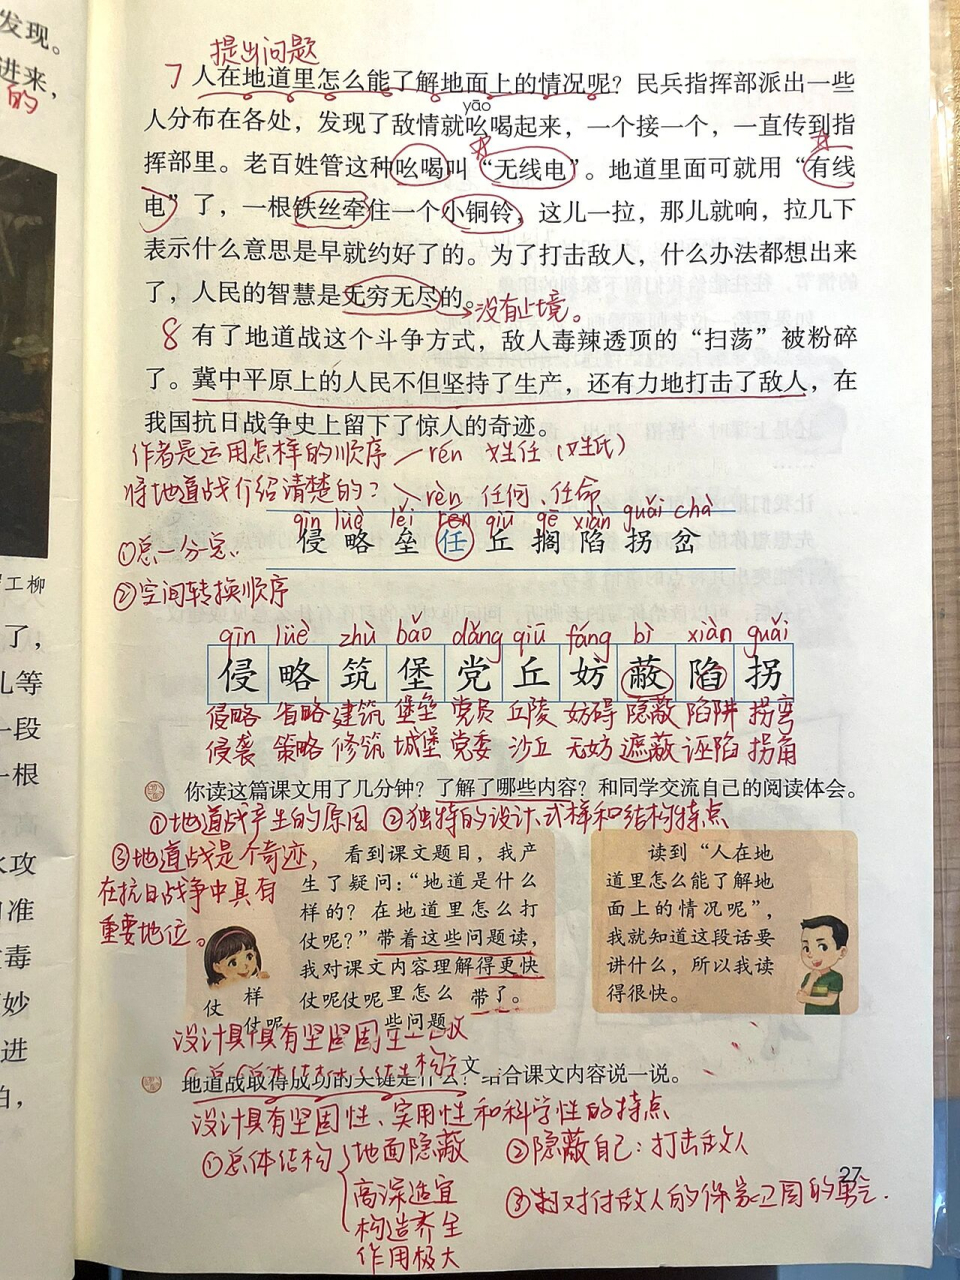 发现。
进来，
的
工柳
了，
儿等
一段
一根
水攻
准
毒
妙
进
提出问题
7 人在地道里怎么能了解地面上的情况呢？民兵指挥部派出一些
yāo
人分布在各处，发现了敌情就吆喝起来，一个接一个，一直传到指
挥部里。老百姓管这种吆喝叫“无线电”。地道里面可就用“有线
电”了，一根铁丝牵住一个小铜铃，这儿一拉，那儿就响，拉几下
表示什么意思是早就约好了的。为了打击敌人，什么办法都想出来
了，人民的智慧是无穷无尽的。
没有止境。
8 有了地道战这个斗争方式，敌人毒辣透顶的“扫荡”被粉碎
了。冀中平原上的人民不但坚持了生产，还有力地打击了敌人，在
我国抗日战争史上留下了惊人的奇迹。
作者是运用怎样的顺序 rén 姓任（姓氏）
将地道战介绍清楚的？ rèn 任何、任命
qīn lüè lěi rén qiū gē xiàn guǎi chà
侵 略 垒 任 丘 搁 陷 拐 岔
①总一分总.
②空间转换顺序
qīn lüè zhù bǎo dǎng qiū fáng bì xiàn guǎi
侵 略 筑 堡 党 丘 妨 蔽 陷 拐
侵略 省略 建筑 堡垒 党员 丘陵 妨碍 隐蔽 陷阱 拐弯
侵袭 策略 修筑 城堡 党委 沙丘 无妨 遮蔽 诬陷 拐角
你读这篇课文用了几分钟？了解了哪些内容？和同学交流自己的阅读体会。
①地道战产生的原因 ②独特的设计式样和结构特点
③地道战是个奇迹，
在抗日战争中具有
重要地位。
看到课文题目，我产
生了疑问：“地道是什么
样的？在地道里怎么打
仗呢？”带着这些问题读，
我对课文内容理解得更快
仗呢仗呢里怎么 带了。
仗 样
仗呢 些问题
读到“人在地
道里怎么能了解地
面上的情况呢”，
我就知道这段话要
讲什么，所以我读
得很快。
地道战取得成功的关键是什么？结合课文内容说一说。
设计具有坚固性、实用性和科学性的特点
①总体结构 地面隐蔽
高深适宜
构造齐全
作用极大
②隐蔽自己：打击敌人
27